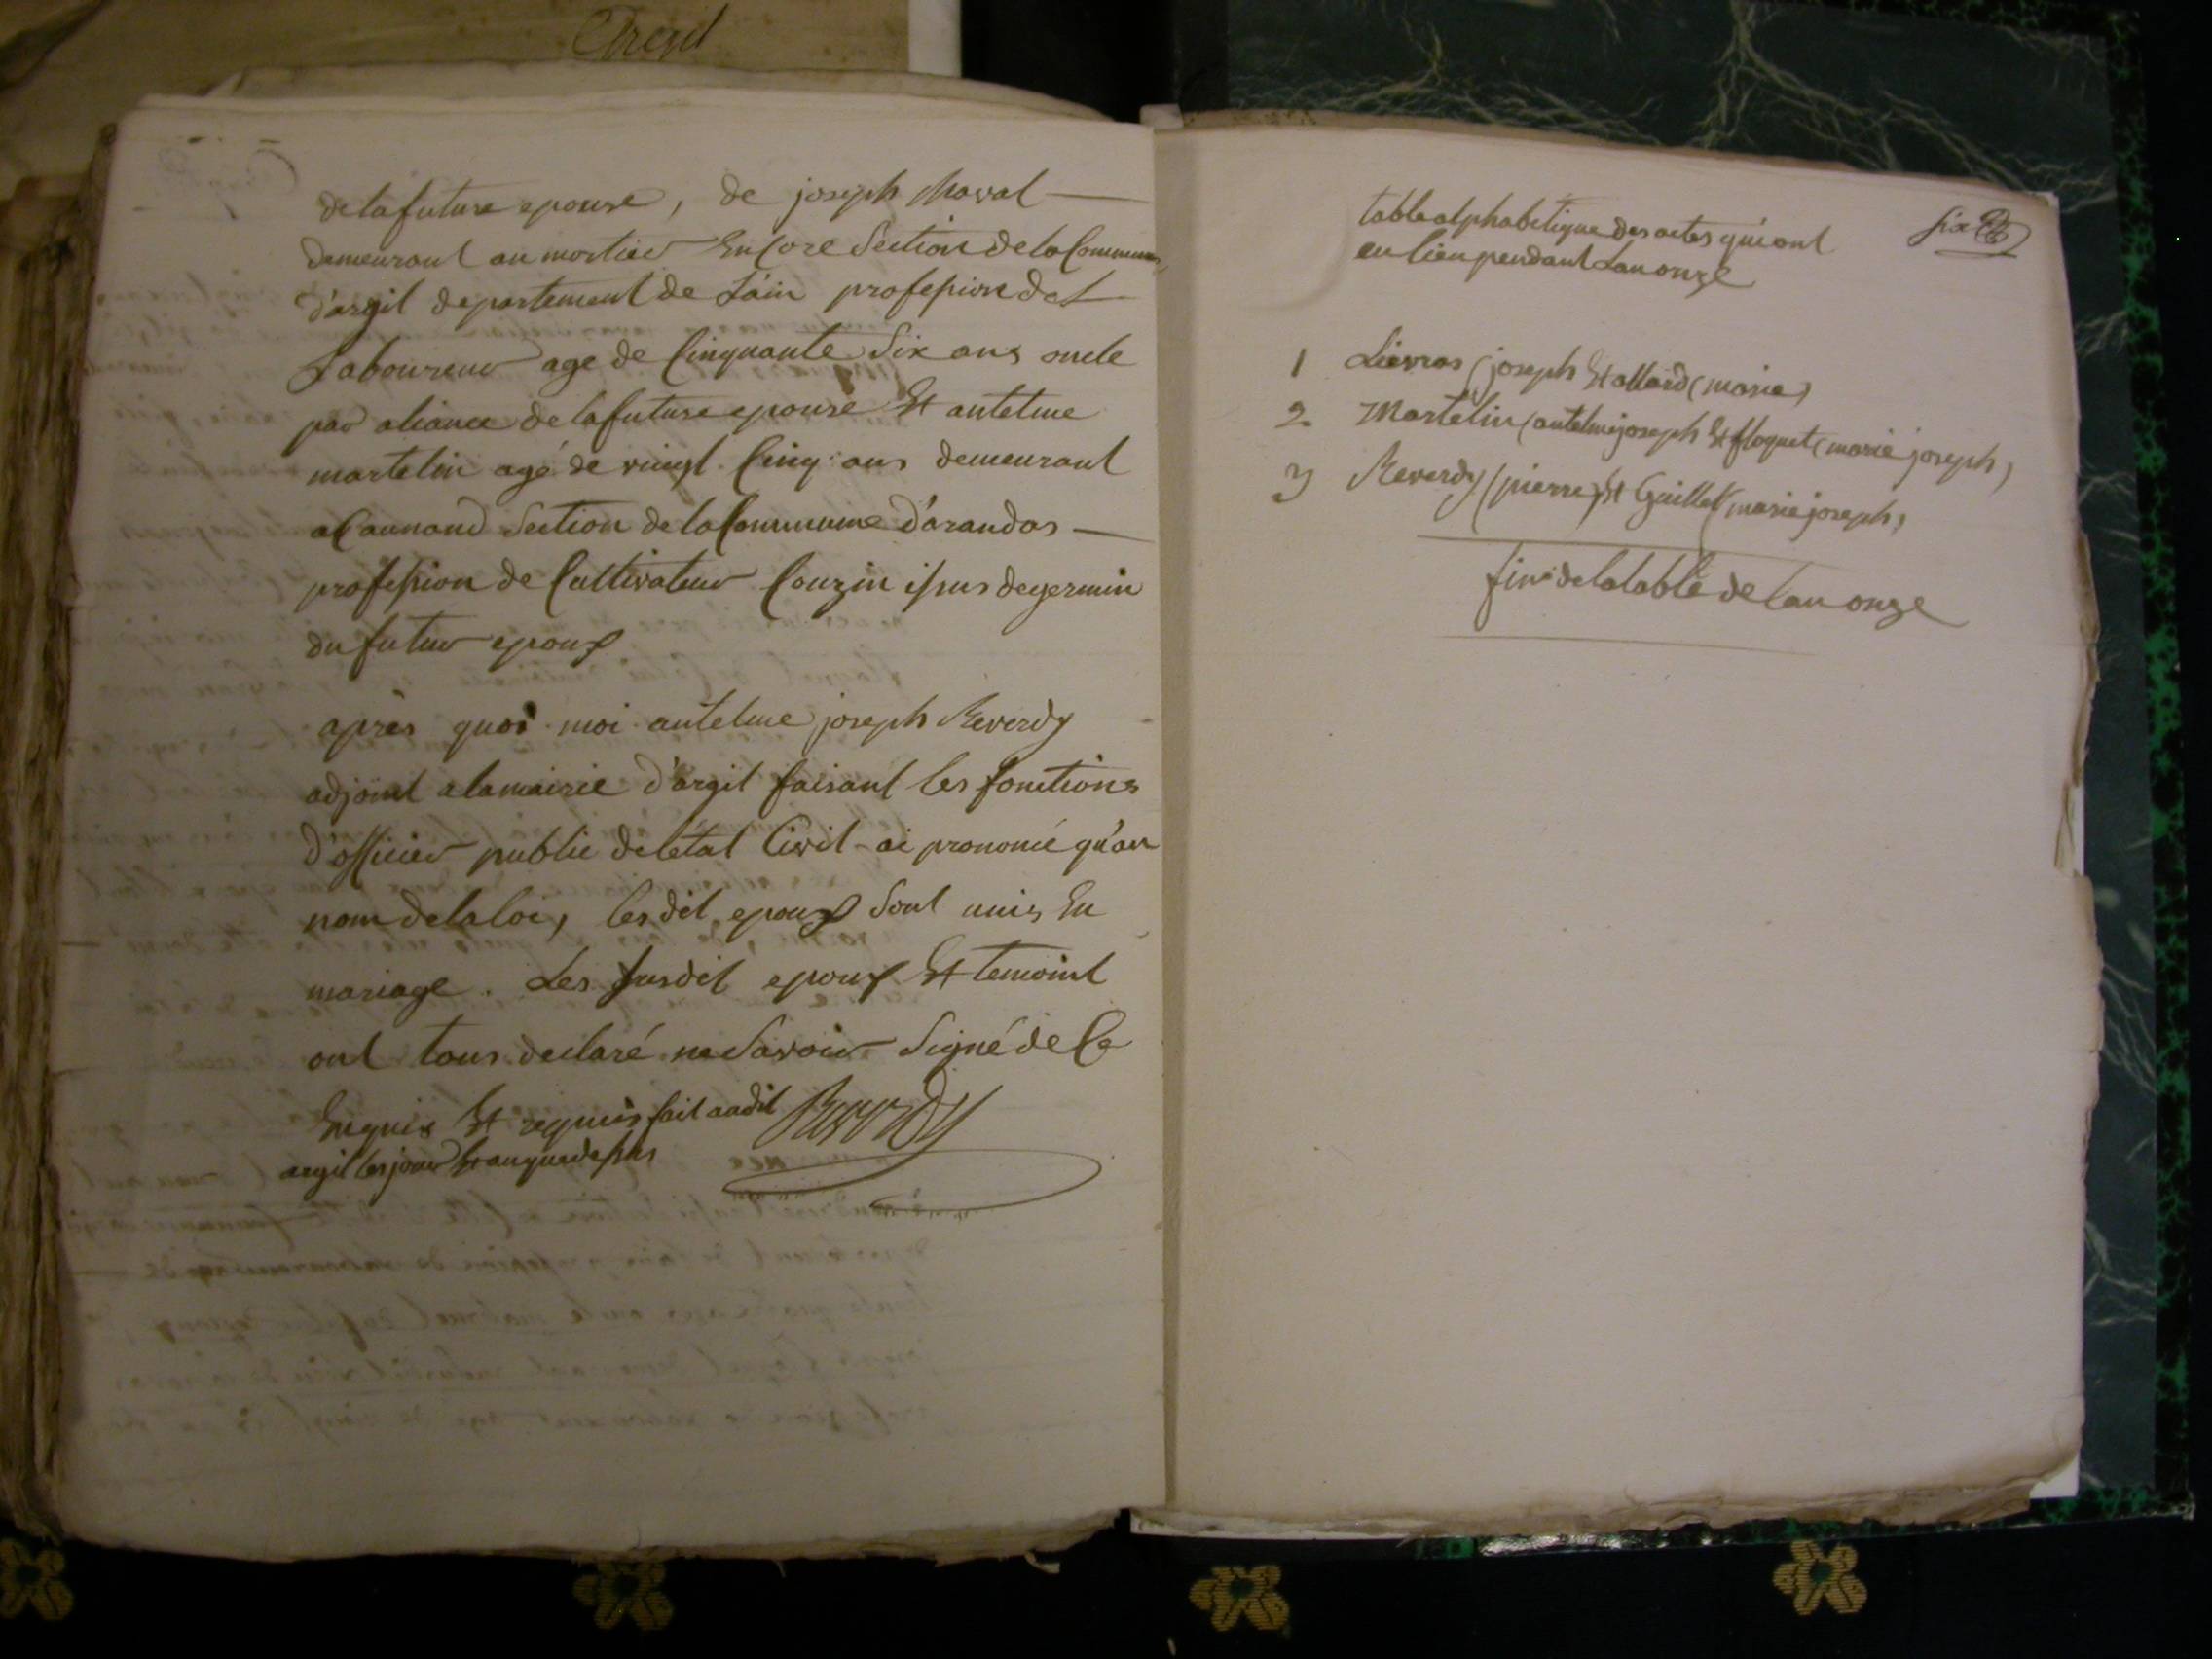 Argil
de la future epouse, de joseph Maval
demeurant au mortier Encore Section de la Commune
d'argil departement de L'ain profession de
Laboureur age de Cinquante Six ans oncle
par aliance de la future epouse Et antelme
martelin agé de vingt Cinq ans demeurant
a Caunand Section de la Commune d'arandas
profession de Cultivateur Couzin issus de germin
du futur epoux
après quoi moi antelme joseph Reverdy
adjoint a la mairie d'argil faisant les fonctions
d'officier public de létat Civil ai prononcé qu'au
nom de la loi, les dit epoux Sont unis En
mariage. Les susdit epoux Et temoint
ont tous declaré ne Savoir Signé de Ce
Enquis Et requis fait audit Reverdy
argil les jour Et an que dessus
table alphabetique des actes qui ont
eu lieu pendant Lan onze
six
1 Lievras (joseph Et allard (marie)
2 Martelin (antelme joseph Et floquet (marie joseph)
3 Reverdy (pierre) Et Guillet (marie joseph)
fin de la table de lan onze